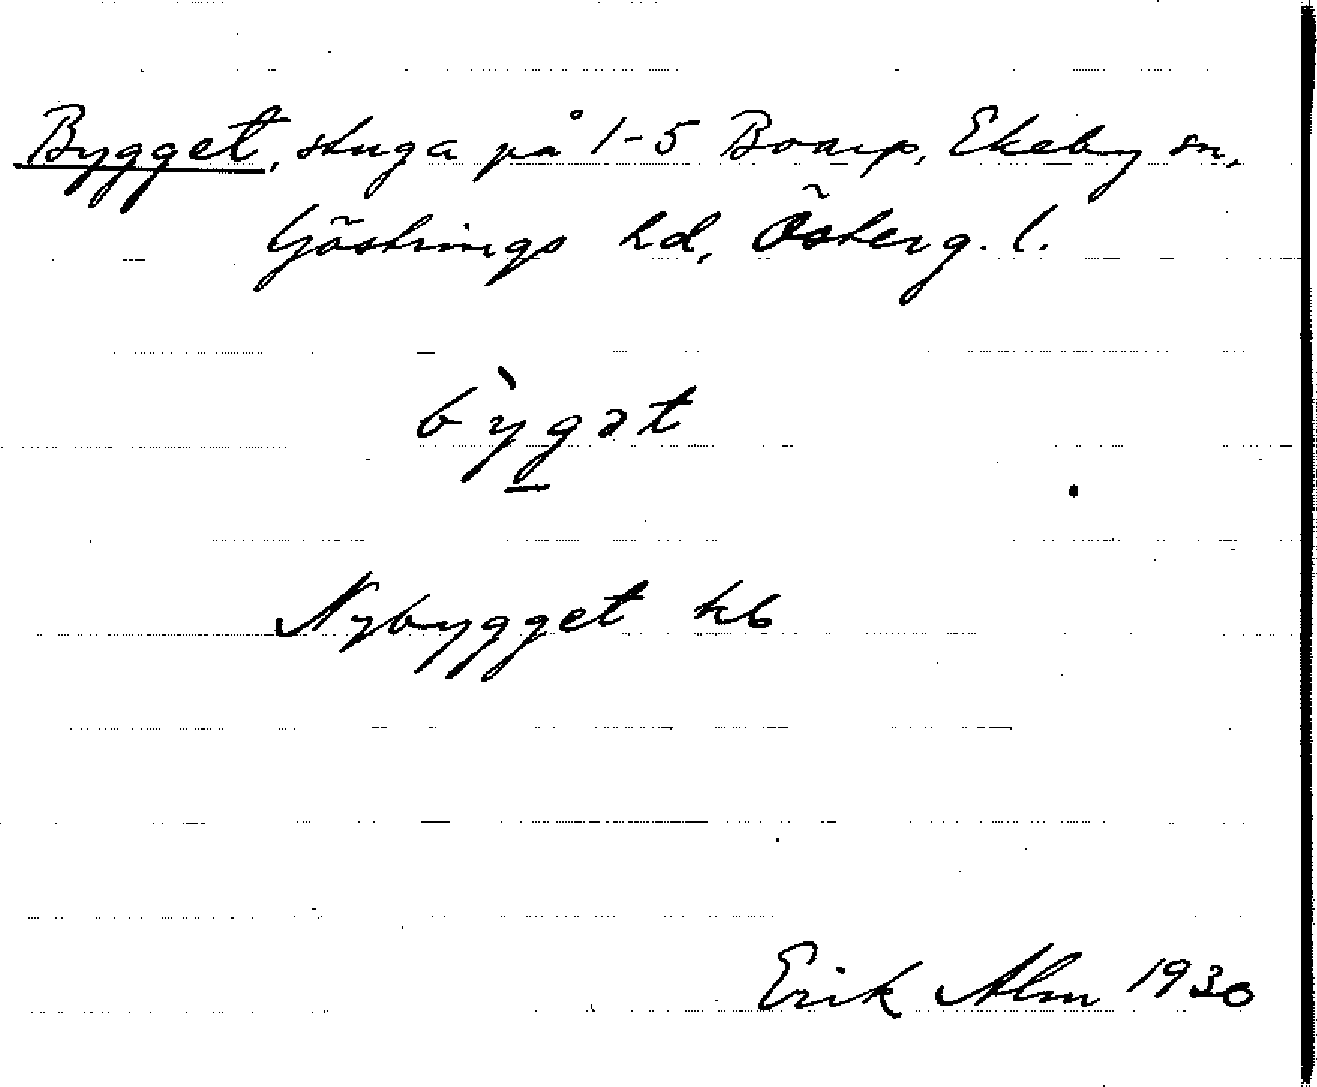 Bygget, stuga på 1-5 Bonarp, Ekeby sn,
Göstrings hd, Österg. l.
bỳgət
Nybygget kb
Erik Alm 1930